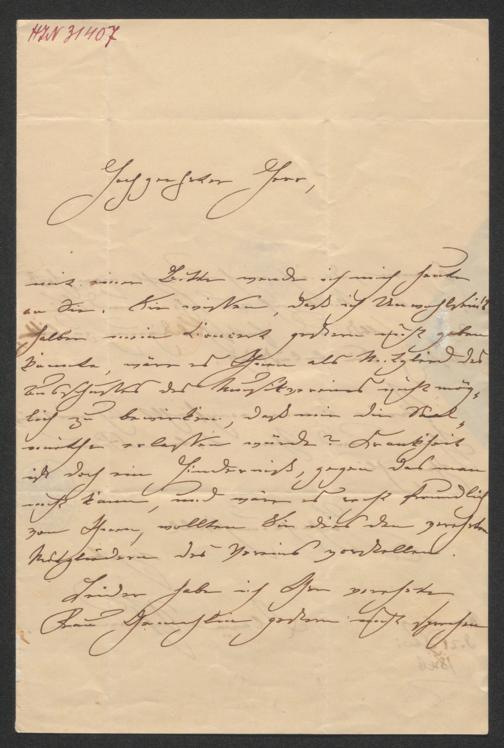 HIN 31407
Hochgeehrter Herr,
mit einer Bitte wende ich mich heute
an Sie. Sie wissen, daß ich Unwohlseins
halber mein Concert gestern nicht geben
konnte, wäre es Ihnen als Mitglied des
Ausschusses des Musikvereins nicht mög-
lich zu bewirken, daß mir die Saal-
miethe erlassen würde? Krankheit
ist doch ein Hinderniß, gegen das man
nicht kann, und wäre es recht freundlich
von Ihnen, wollten Sie dies den verehrten
Mitgliedern des Vereins vorstellen.
Leider habe ich Ihre verehrte
Frau Gemahlin gestern nicht sprechen